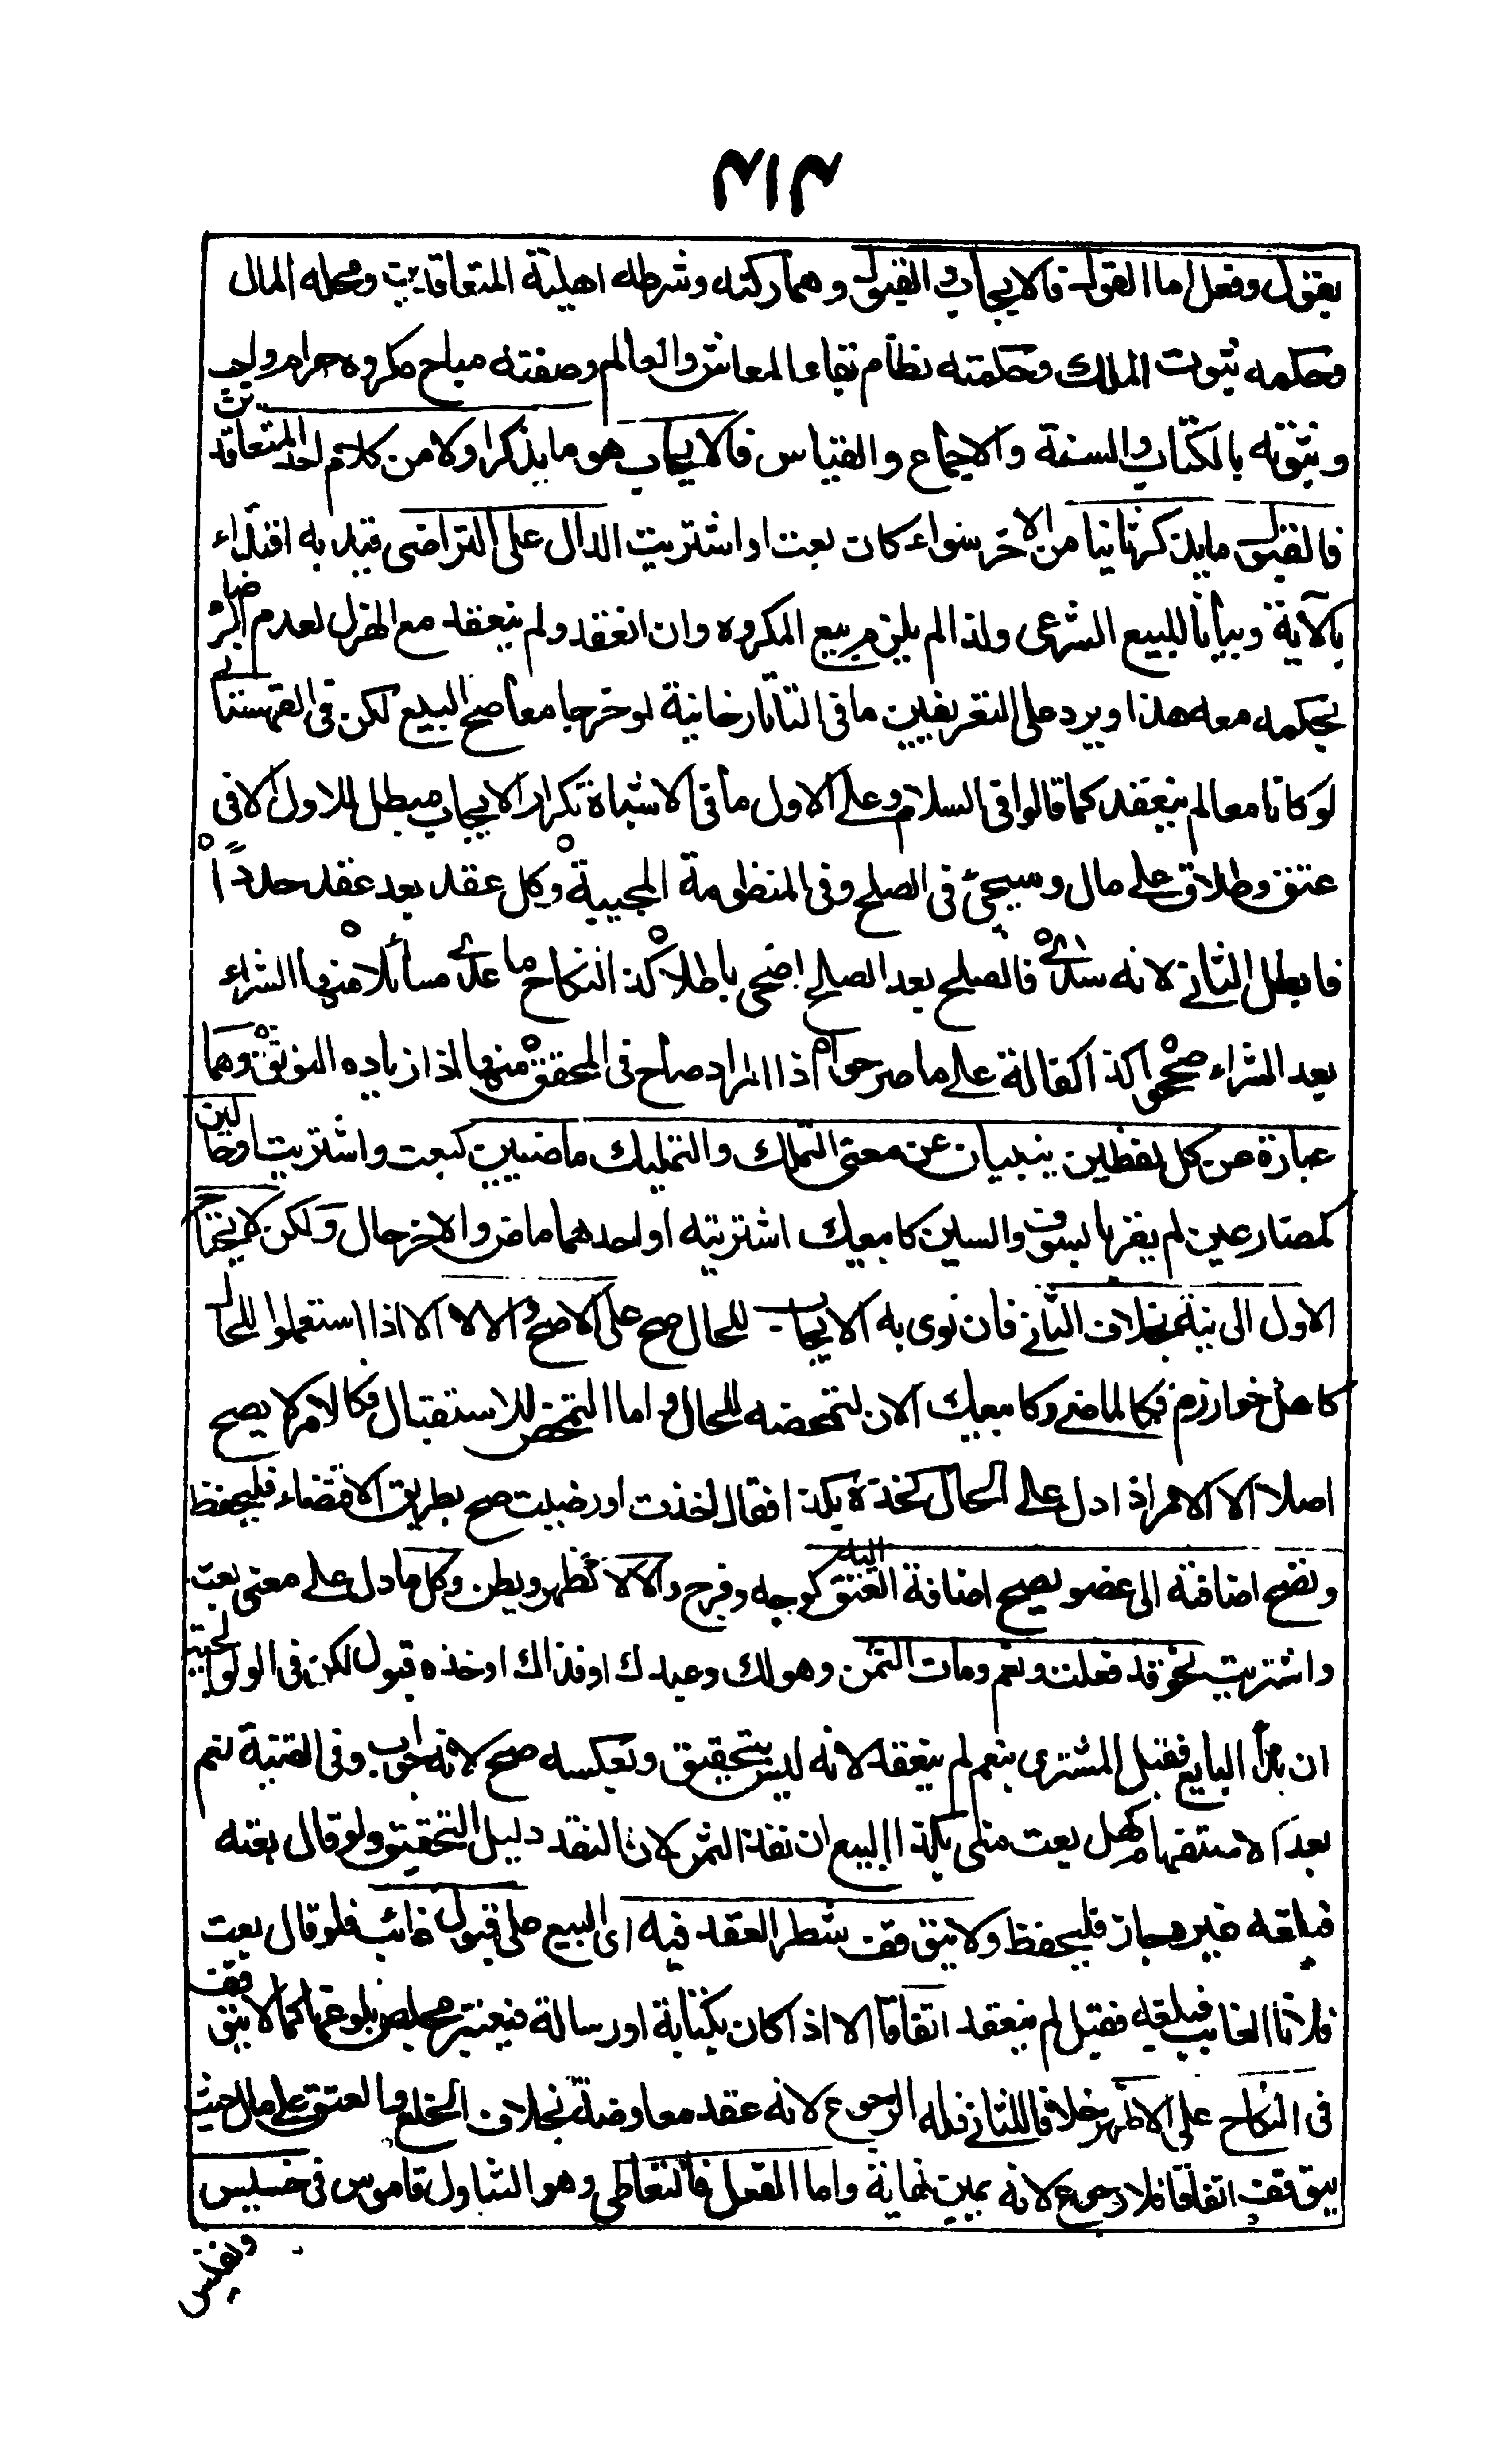 ٣١٣
بقول وفعل اما القول فالايجاب والقبول وهما ركنه وشرطه اهلية المتعاقدين ومحله المال
وحكمه ثبوت الملك وحكمته نظام بقاء المعاش والعالم وصفته مباح مكروه حرام واجب
وثبوته بالكتاب والسنة والاجماع والقياس فالايجاب هو ما يذكر اولا من كلام احد المتعاقدين
فالقبول ما يذكر ثانيا من الاخر سواء كان بعت او اشتريت الدال على التراضى قيد به اقتداء
بالآية وبيانا للبيع الشرعى ولذا لم يلزم بيع المكروه وان انعقد ولم ينعقد مع الهزل لعدم الرضا
بحكمه معه هذا ويرد على التعريفين ما فى التاتارخانية لو خرجا معا صح البيع لكن فى القهستانى
لو كانا معا لم ينعقد كما قالوا فى السلام وعلى الاول ما فى الاشباه تكرار الايجاب مبطل للاول الا فى
عتق وطلاق على مال وسيجئ فى الصلح وفى المنظومة المحبية وكل عقد بعد عقد جددا
فابطل الثانى لانه سدى فالصلح بعد الصلح اضحى باطلا كذا النكاح ما عدى مسائلا منها الشراء
بعد الشراء صححوا كذا كفالة على ما صرحوا اذ المراد صاح فى المحقق منها اذا زيادة التوثق وهما
عبارة عن كل لفظين ينبيان عن معنى التملك والتمليك ماضيين كبعت واشتريت او حالين
كمضارعين لم يقرنا بسوف والسين كابيعك اشتريته او احدهما ماض والاخر حال ولكن لا يحتاج
الاول الى نية بخلاف الثانى فان نوى به الايجاب للحال صح على الاصح والا لا الا اذا استعملوا للحال
كاهل خوارزم فكالماضى وكابيعك الان لتمحضه للحال واما المتمحض للاستقبال فكالامر لا يصح
اصلا الا الامر اذا دل على الحال كخذه بكذا فقال اخذت او رضيت صح بطريق الاقتضاء فليحفظ
وتصح اضافته الى عضو يصح اضافة العتق اليه كوجه وفرج والا لا كظهر وبطن وكل ما دل على معنى بعت
واشتريت نحو قد فعلت ونعم وهات الثمن وهو لك وعبدك او فداك او خذه قبول لكن فى الولوالجية
ان بدأ البايع فقبل المشترى بنعم لم ينعقد لانه ليس بتحقيق وبعكسه صح لانه جواب وفى القنية نعم
بعد الاستفهام كهل بعت منى بكذا البيع ان نقد الثمن لان النقد دليل التحقيق ولو قال بعته
فبلغه غيره جاز فليحفظ ولا يتوقف شطر العقد فيه اى البيع على قبول غائب فلو قال بعت
فلانا الغايب فبلغه فقبل لم ينعقد اتفاقا الا اذا كان بكتابة او رسالة فيعتبر مجلس بلوغها كما لا يتوقف
فى النكاح على الاظهر خلافا للثانى فله الرجوع لانه عقد معاوضة بخلاف الخلع والعتق على مال حيث
يتوقف اتفاقا فلا رجوع لانه يمين نهاية واما الفعل فالتعاطى وهو التناول قاموس فى خسيس
ونفيس